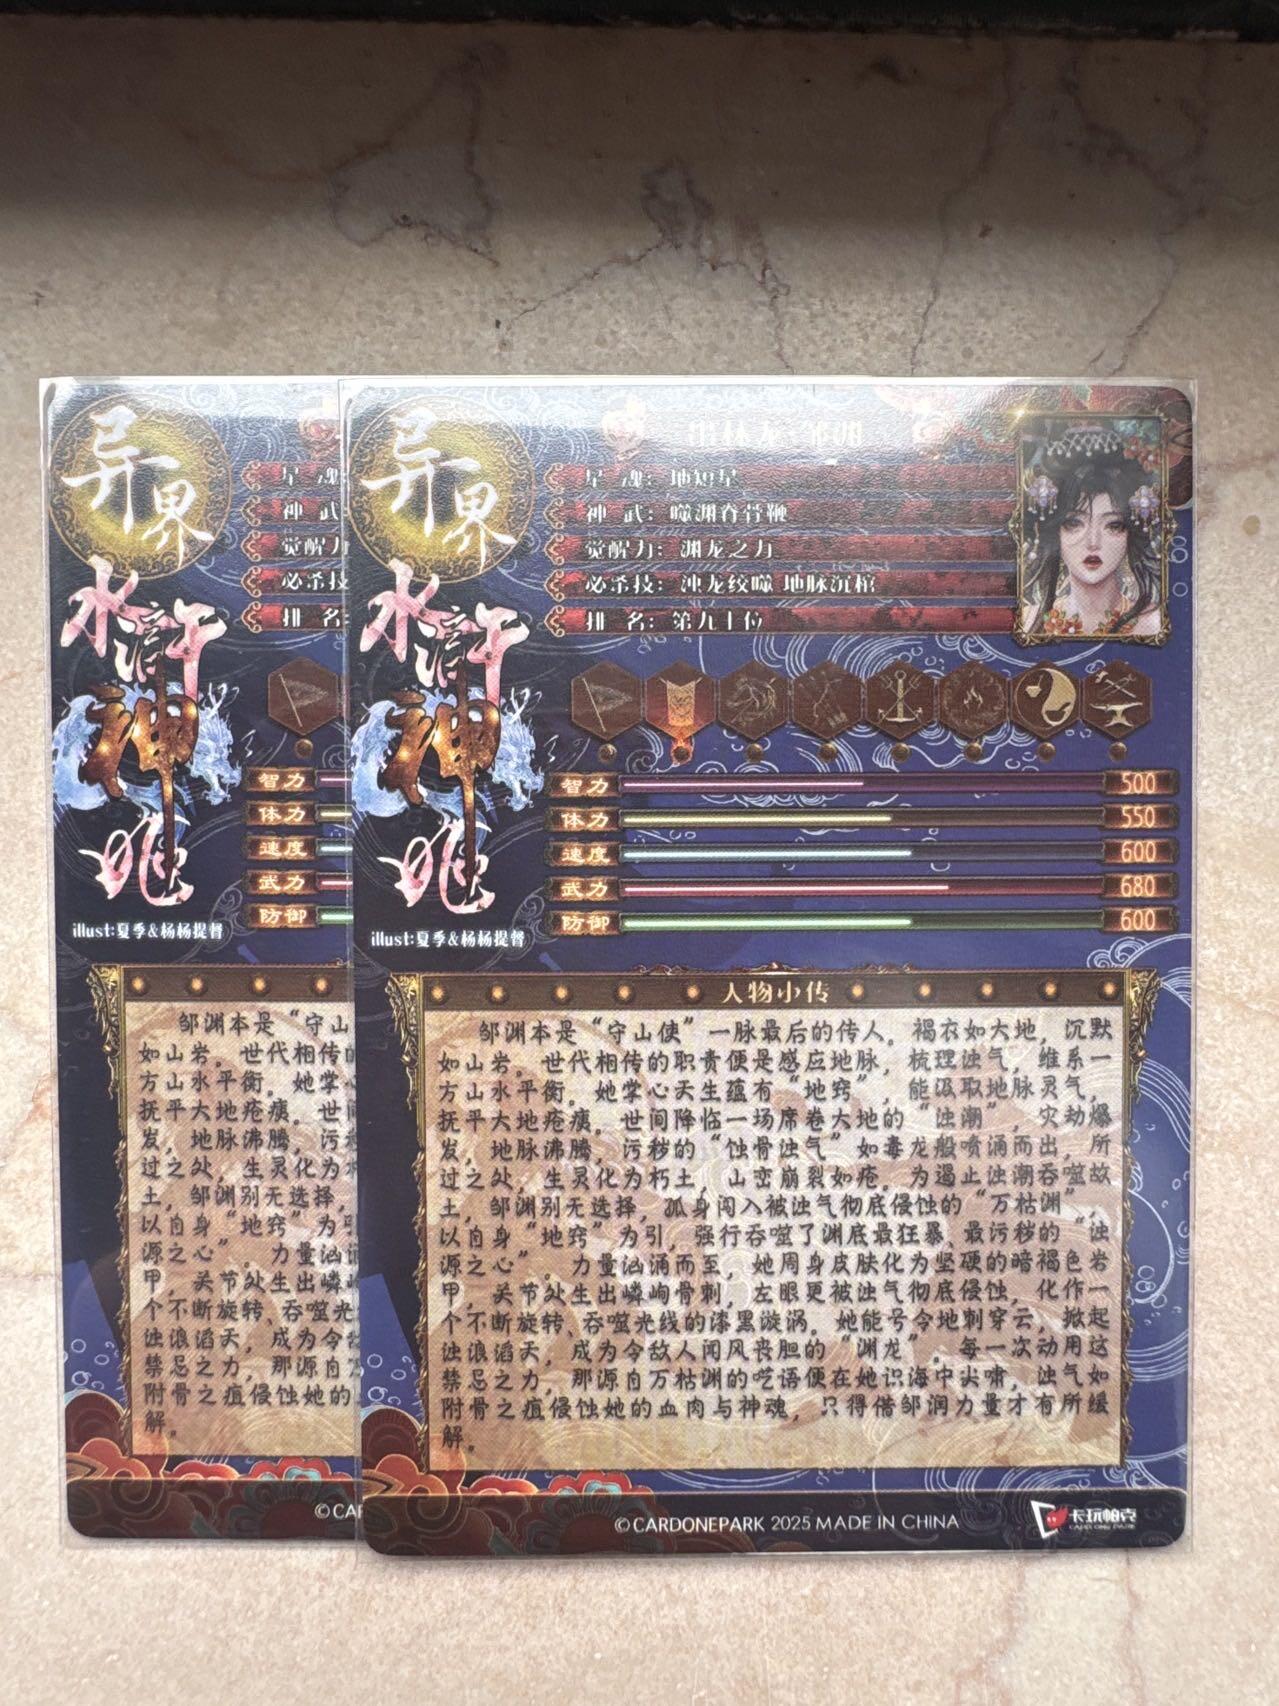 异界
水浒
神
兆
illust:夏季&杨杨提督
星 魂
神 武
觉醒力
必杀技
排 名:
智力
体力
速度
武力
防御
邹渊本是“守山
如山岩。世代相传的
方山水平衡。她掌心
抚平大地疮痍。世间
发,地脉沸腾,污秽
过之处,生灵化为朽
土,邹渊别无选择,
以自身“地窍”为引
源之心”。力量汹涌
甲,关节处生出嶙峋
个不断旋转、吞噬光
浊浪滔天,成为令敌
禁忌之力,那源自万
附骨之疽侵蚀她的
解。
©CAR
异界
水浒
神
兆
illust:夏季&杨杨提督
出林龙·邹渊
星 魂: 地短星
神 武: 噬渊脊骨鞭
觉醒力: 渊龙之力
必杀技: 冲龙绞噬 地脉沉棺
排 名: 第九十位
智力 500
体力 550
速度 600
武力 680
防御 600
人物小传
邹渊本是“守山使”一脉最后的传人。褐衣如大地,沉默
如山岩。世代相传的职责便是感应地脉,梳理浊气,维系一
方山水平衡。她掌心天生蕴有“地窍”,能汲取地脉灵气,
抚平大地疮痍。世间降临一场席卷大地的“浊潮”,灾劫爆
发,地脉沸腾,污秽的“蚀骨浊气”如毒龙般喷涌而出,所
过之处,生灵化为朽土,山峦崩裂如疮。为遏止浊潮吞噬故
土,邹渊别无选择,孤身闯入被浊气彻底侵蚀的“万枯渊”,
以自身“地窍”为引,强行吞噬了渊底最狂暴、最污秽的“浊
源之心”。力量汹涌而至,她周身皮肤化为坚硬的暗褐色岩
甲,关节处生出嶙峋骨刺,左眼更被浊气彻底侵蚀,化作一
个不断旋转、吞噬光线的漆黑漩涡。她能号令地刺穿云,掀起
浊浪滔天,成为令敌人闻风丧胆的“渊龙”。每一次动用这
禁忌之力,那源自万枯渊的呓语便在她识海中尖啸,浊气如
附骨之疽侵蚀她的血肉与神魂,只得借邹润力量才有所缓
解。
©CARDONEPARK 2025 MADE IN CHINA
卡玩帕克